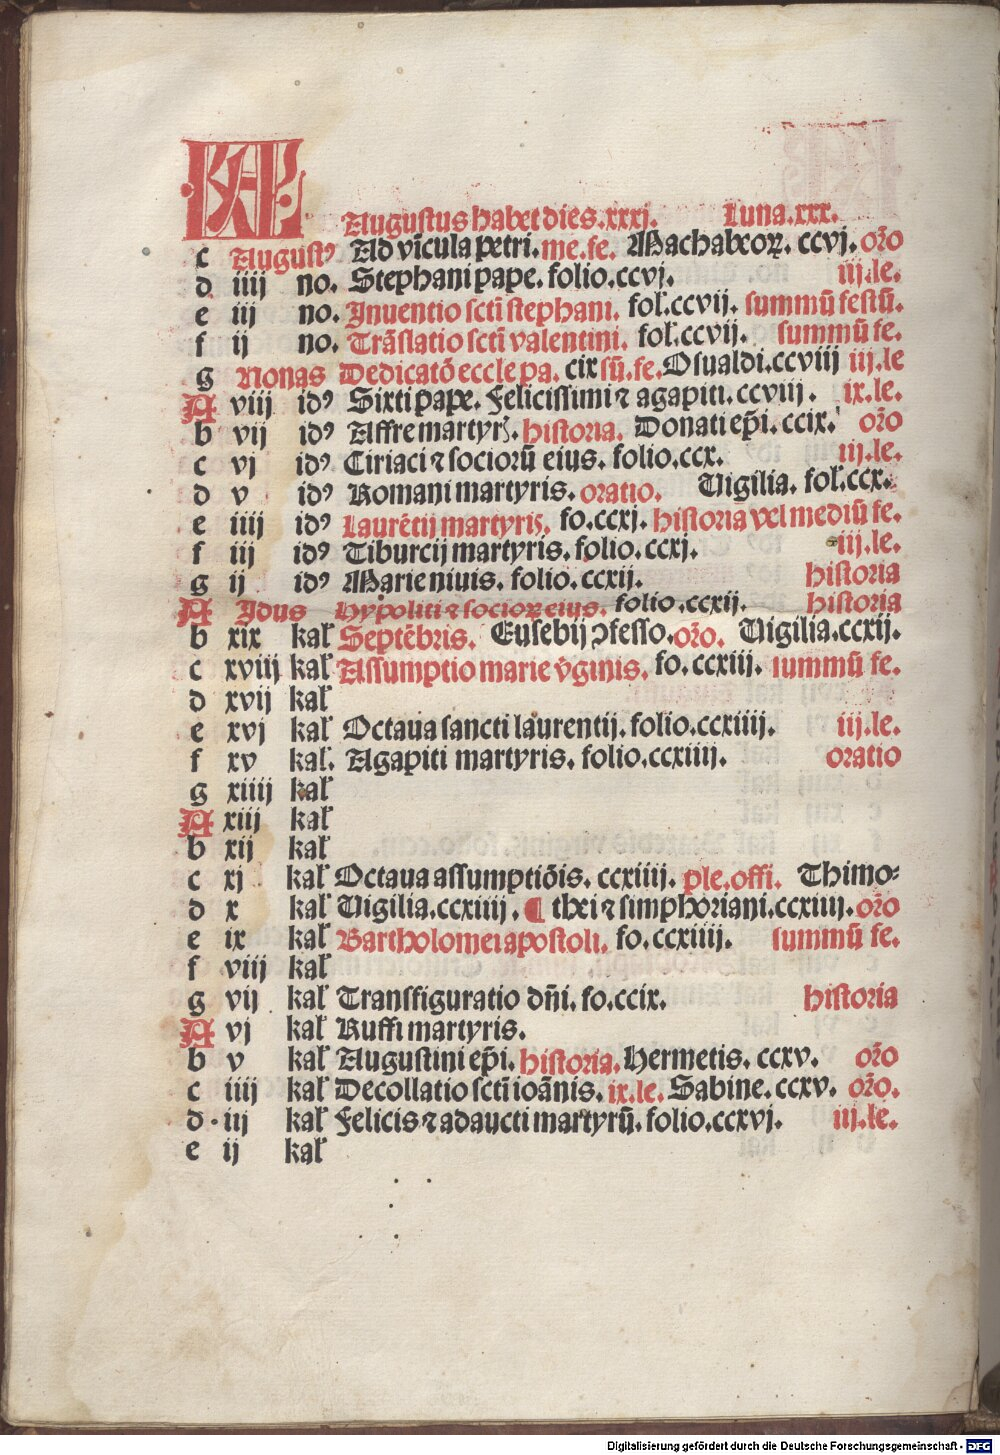 KAL
Augustus habet dies.xxxj. Luna.xxx.
c Augustꝰ Ad vīcula petri. me.fe. Machabeoꝝ. ccvj. oꝛ̄o
d iiij no. Stephani pape. folio.ccvj. iij.le.
e iij no. Inuentio sctī stephani. fol̓.ccvij. summū festū.
f ij no. Trāslatio sctī valentini. fol̓.ccvij. summū fe.
g Nonas Dedicatō eccle pa. cix sū.fe. Osualdi.ccviij iij.le
A viij idꝰ Sixti pape. Felicissimi ⁊ agapiti.ccviij. ix.le.
b vij idꝰ Affre martyrꝭ. historia. Donati ep̄i. ccix. oꝛ̄o
c vj idꝰ Ciriaci ⁊ sociorū eius. folio.ccx. iij.le.
d v idꝰ Romani martyris. oratio. Uigilia. fol̓.ccx.
e iiij idꝰ Laurētij martyrꝭ. fo.ccxj. historia vel mediū fe.
f iij idꝰ Tiburcij martyris. folio.ccxj. iij.le.
g ij idꝰ Marie niuis. folio.ccxij. historia
A Idus Hypoliti ⁊ socioꝝ eius. folio.ccxij. historia
b xix kal̓ Septēbris. Eusebij ꝯfesso. oꝛ̄o. Uigilia.ccxij.
c xviij kal̓ Assumptio marie v̄ginis. fo.ccxiij. summū fe.
d xvij kal̓
e xvj kal̓ Octaua sancti laurentij. folio.ccxiiij. iij.le.
f xv kal̓. Agapiti martyris. folio.ccxiiij. oratio
g xiiij kal̓
A xiij kal̓
b xij kal̓
c xj kal̓ Octaua assumptiōis. ccxiiij. ple.offi. Thimo⸗
d x kal̓ Uigilia.ccxiiij. ¶ thei ⁊ simphoriani.ccxiiij. oꝛ̄o
e ix kal̓ Bartholomei apostoli. fo.ccxiiij. summū fe.
f viij kal̓
g vij kal̓ Transfiguratio dn̄i. fo.ccix. historia
A vj kal̓ Ruffi martyris.
b v kal̓ Augustini ep̄i. historia. Hermetis. ccxv. oꝛ̄o
c iiij kal̓ Decollatio sctī ioānis. ix.le. Sabine.ccxv. oꝛ̄o.
d iij kal̓ Felicis ⁊ adaucti martyrū. folio.ccxvj. iij.le.
e ij kal̓
Digitalisierung gefördert durch die Deutsche Forschungsgemeinschaft - DFG